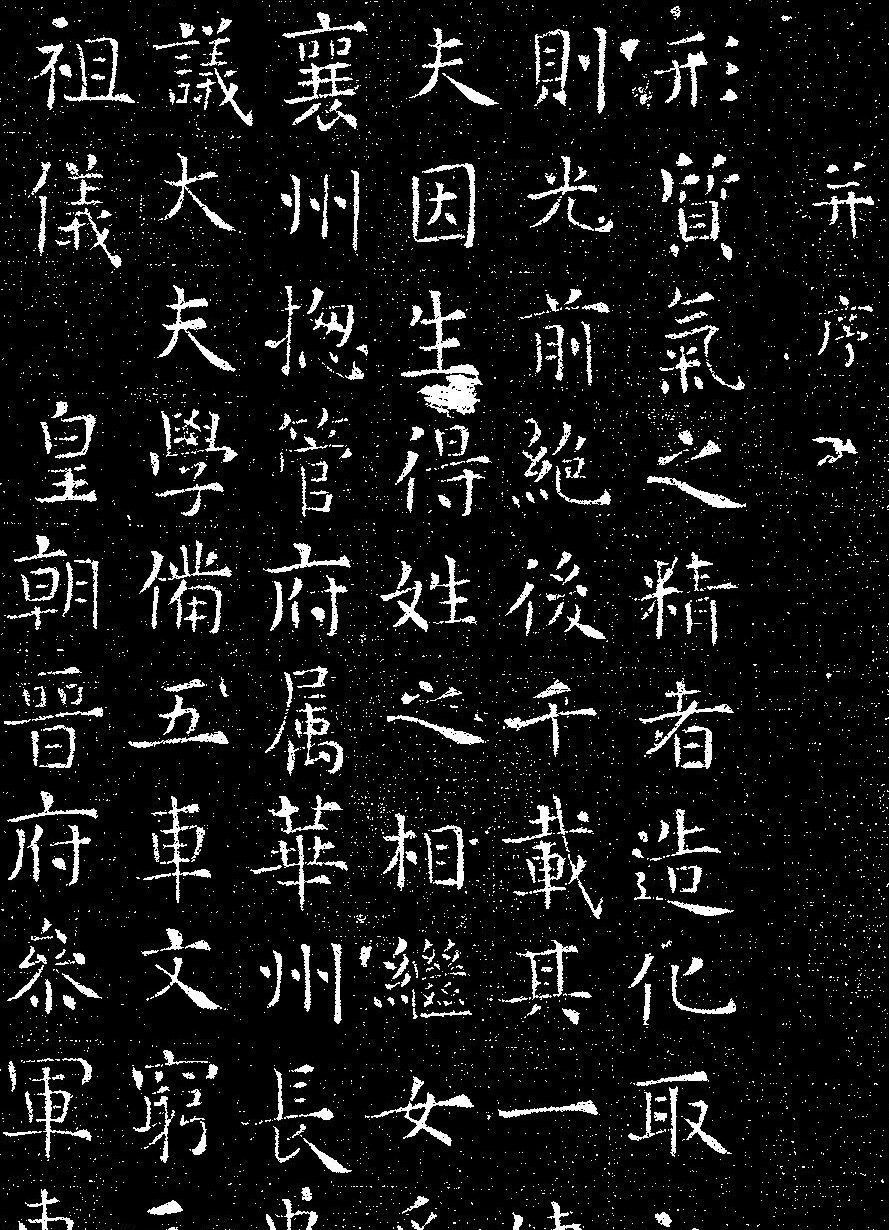 并序
形質氣之精者造化取
則光前絕後千載其一
夫因生得姓之相繼女
襄州揔管府属華州長
議大夫學備五車文窮
祖儀皇朝晉府參軍